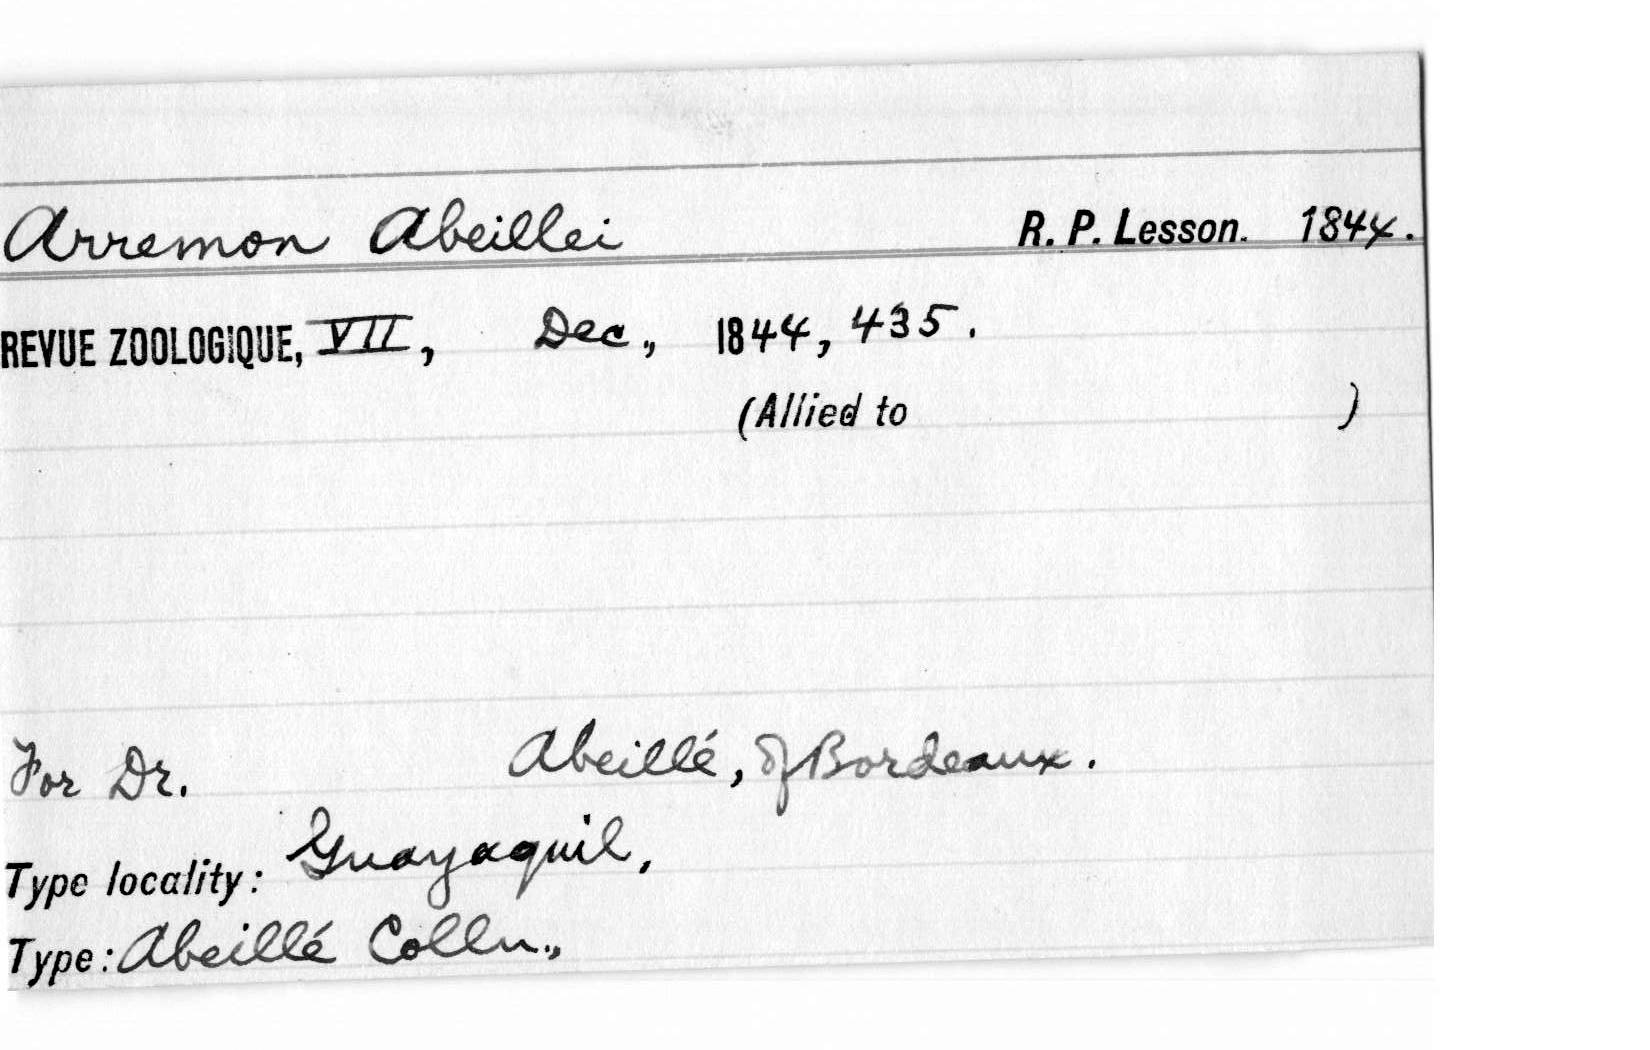 Arremon Abeillei R. P. Lesson. 1844.
REVUE ZOOLOGIQUE, VII, Dec., 1844, 435.
(Allied to )
For Dr. Abeillé, of Bordeaux.
Type locality: Guayaquil,
Type: Abeillé Colln.,